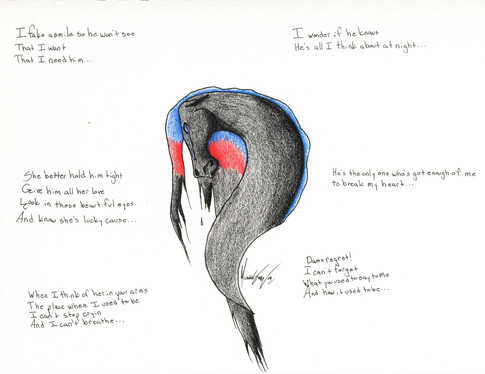 I fake a smile so he won't see
That I want
That I need him...
I wonder if he knows
He's all I think about at night...
She better hold him tight
Give him all her love
Look in those beautiful eyes
And know she's lucky cause...
He's the only one who's got enough of me
to break my heart...
When I think of her in your arms
The place where I used to be
I can't stop cryin
And I can't breathe...
Damn regret!
I can't forget
What you used to say to me
And how it used to be...